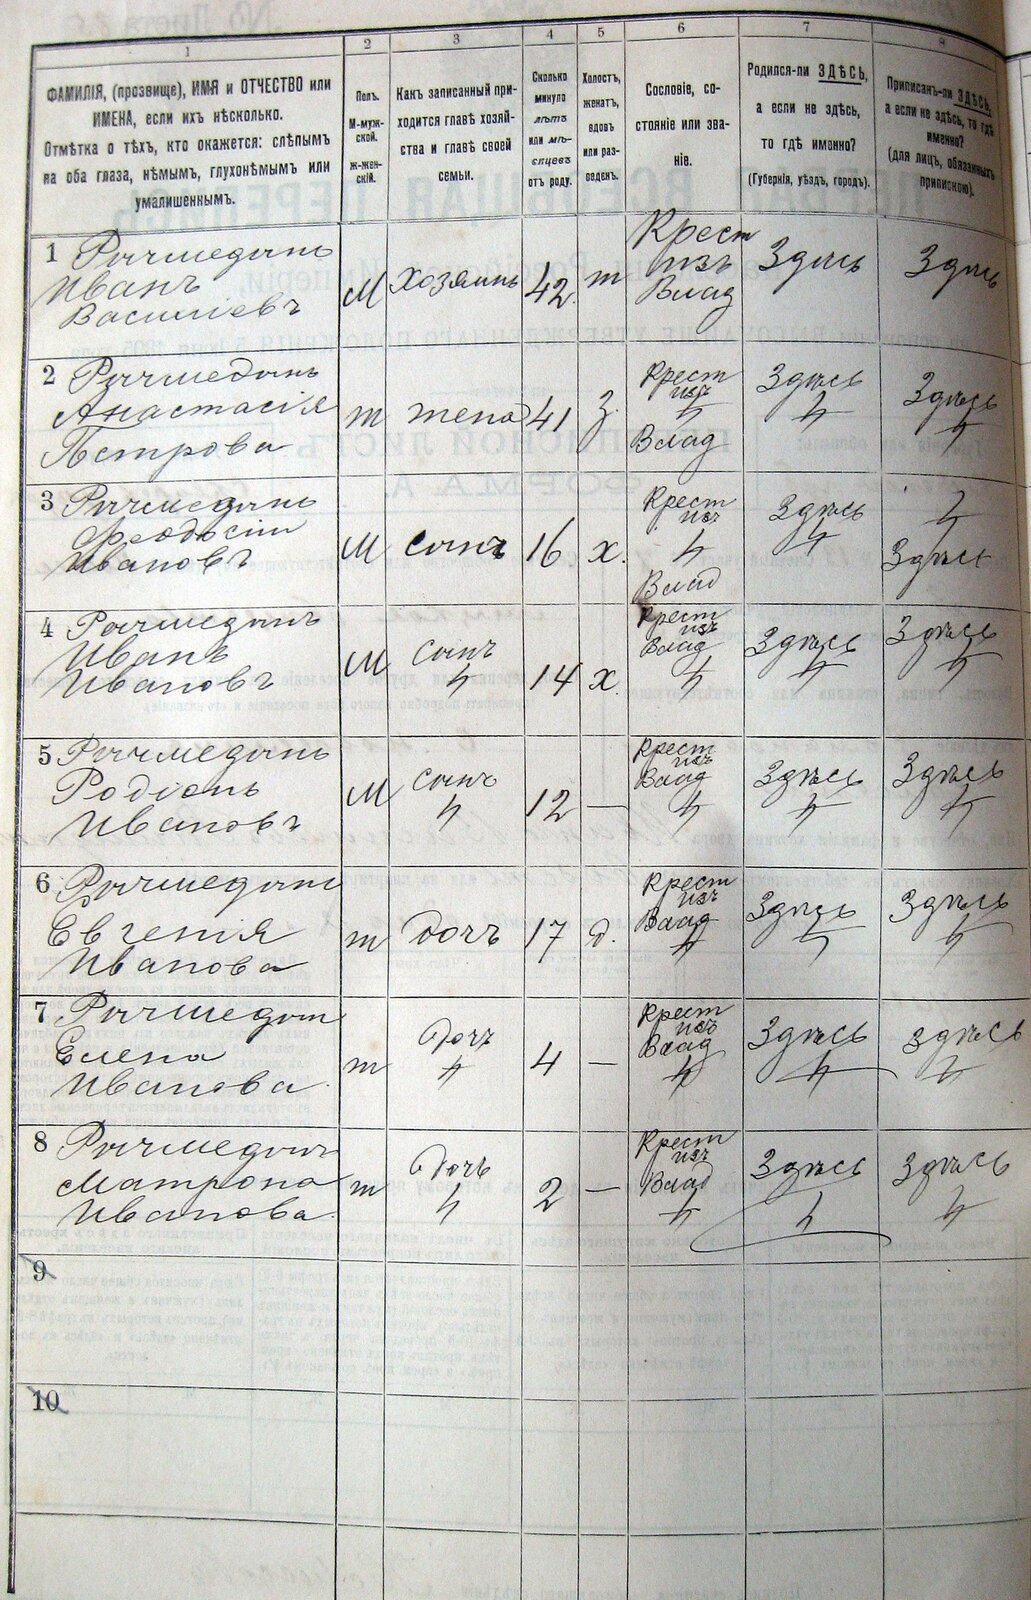 1
2
3
4
5
6
7
8
ФАМИЛІЯ, (прозвище), ИМЯ и ОТЧЕСТВО или
ИМЕНА, если ихъ нѣсколько.
Отмѣтка о тѣхъ, кто окажется: слѣпымъ
на оба глаза, нѣмымъ, глухонѣмымъ или
умалишеннымъ.
Полъ.
М-муж-
ской.
ж-жен-
скій.
Какъ записанный при-
ходится главѣ хозяй-
ства и главѣ своей
семьи.
Сколько
минуло
лѣтъ
или мѣ-
сяцевъ
отъ роду.
Холостъ,
женатъ,
вдовъ
или раз-
веденъ.
Сословіе, со-
стояніе или зва-
ніе.
Родился-ли ЗДѢСЬ,
а если не здѣсь,
то гдѣ именно?
(Губернія, уѣздъ, городъ).
Приписанъ-ли ЗДѢСЬ,
а если не здѣсь, то гдѣ
именно?
(для лицъ, обязанныхъ
припискою).
1
Иванъ
Василіевъ
М
Хозяинъ
42
ж
Крест
изъ
Влад
Здѣсь
Здѣсь
2
Анастасія
Петрова
ж
жена
41
з.
Крест
изъ
Влад
Здѣсь
Здѣсь
3
Феодосій
Ивановъ
М
сынъ
16
х.
Крест
изъ
Влад
Здѣсь
Здѣсь
4
Иванъ
Ивановъ
М
сынъ
14
х.
Крест
изъ
Влад
Здѣсь
Здѣсь
5
Родіонъ
Ивановъ
М
сынъ
12
—
Крест
изъ
Влад
Здѣсь
Здѣсь
6
Евгенія
Иванова
ж
дочь
17
д.
Крест
изъ
Влад
Здѣсь
Здѣсь
7
Елена
Иванова
ж
дочь
4
—
Крест
изъ
Влад
Здѣсь
Здѣсь
8
Матрона
Иванова
ж
дочь
2
—
Крест
изъ
Влад
Здѣсь
Здѣсь
9
10